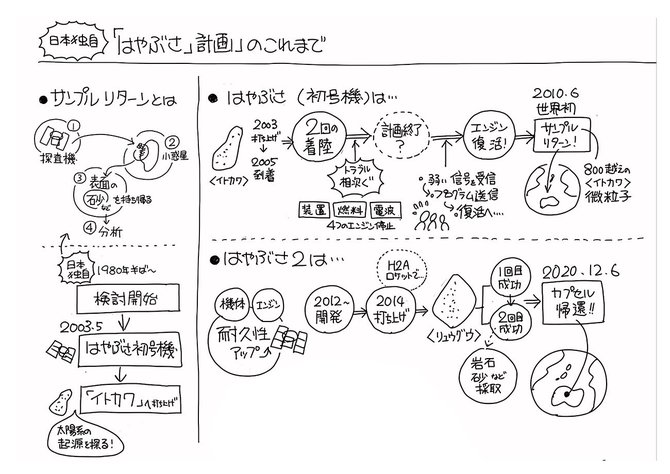 日本独自
「はやぶさ」計画」のこれまで
●サンプルリターンとは
①
探査機
②
小惑星
③
表面の
砂など
を持ち帰る
④
分析
日本
独自
1980年半ば〜
検討開始
2003.5
はやぶさ初号機
「イトカワ」へ打ち上げ
太陽系の
起源を探る!
●はやぶさ(初号機)は…
〈イトカワ〉
2003
打ち上げ
2005
到着
2回の
着陸
トラブル
相次ぐ
装置
燃料
電波
4つのエンジン停止
計画終了
?
弱い信号を受信
プログラム送信
復活へ…
エンジン
復活!
2010.6
世界初
サンプル
リターン!
800越えの
〈イトカワ〉
微粒子
●はやぶさ2は…
機体
エンジン
耐久性
アップ
2012〜
開発
H2A
ロケットで…
2014
打ち上げ
〈リュウグウ〉
1回目
成功
2回目
成功
岩石
砂など
採取
2020.12.6
カプセル
帰還!!